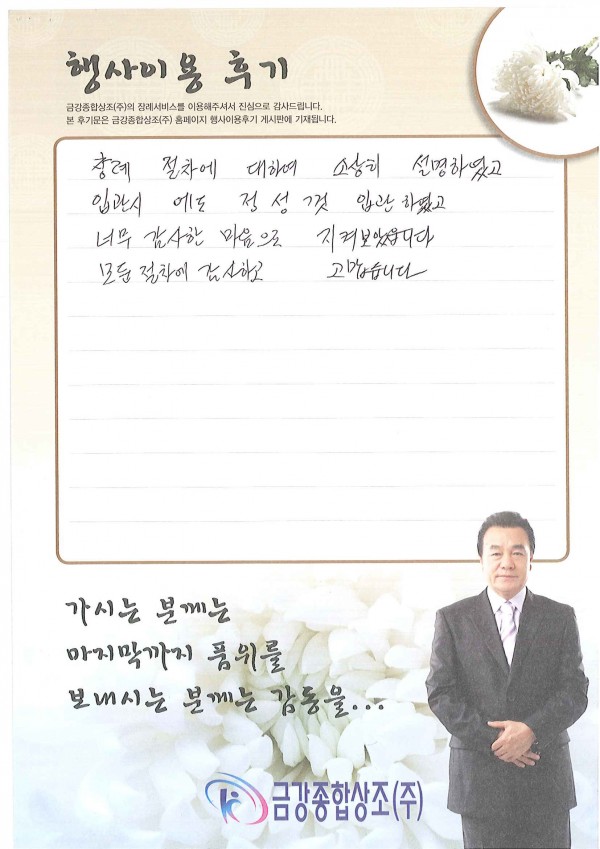 행사이용 후기
금강종합상조(주)의 장례서비스를 이용해주셔서 진심으로 감사드립니다.
본 후기문은 금강종합상조(주) 홈페이지 행사이용후기 게시판에 기재됩니다.
장례 절차에 대하여 소상히 설명하였고
입관시 에도 정성껏 입관 하였고
너무 감사한 마음으로 지켜보았습니다
모든 절차에 감사하고 고맙습니다
가시는 분께는
마지막까지 품위를
보내시는 분께는 감동을...
금강종합상조(주)